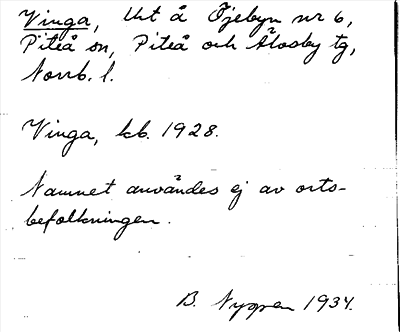 Vinga, Urt å Öjebyn nr 6,
Piteå sn, Piteå och Älvsby tg,
Norrb. l.
Vinga, kb. 1928.
Namnet användes ej av orts-
befolkningen.
B. Nygren 1934.